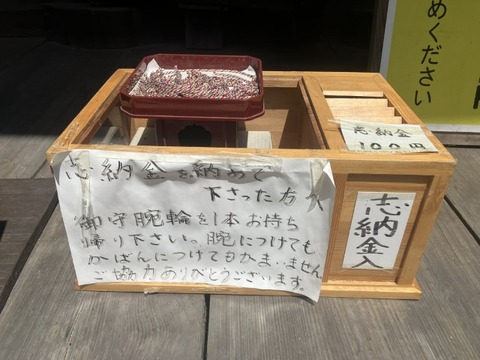 めください
志納金
100円
志納金を納めて
下さった方へ
御守腕輪を1本お持ち
帰り下さい。腕につけても
かばんにつけてもかまいません
ご協力ありがとうございます。
志納金入